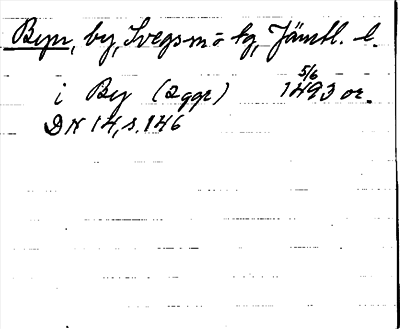 Byn, by, Svegs m = tg, Jämtl. l.
i By (2 ggr) 5/6 1493 or.
DN 14, s. 146